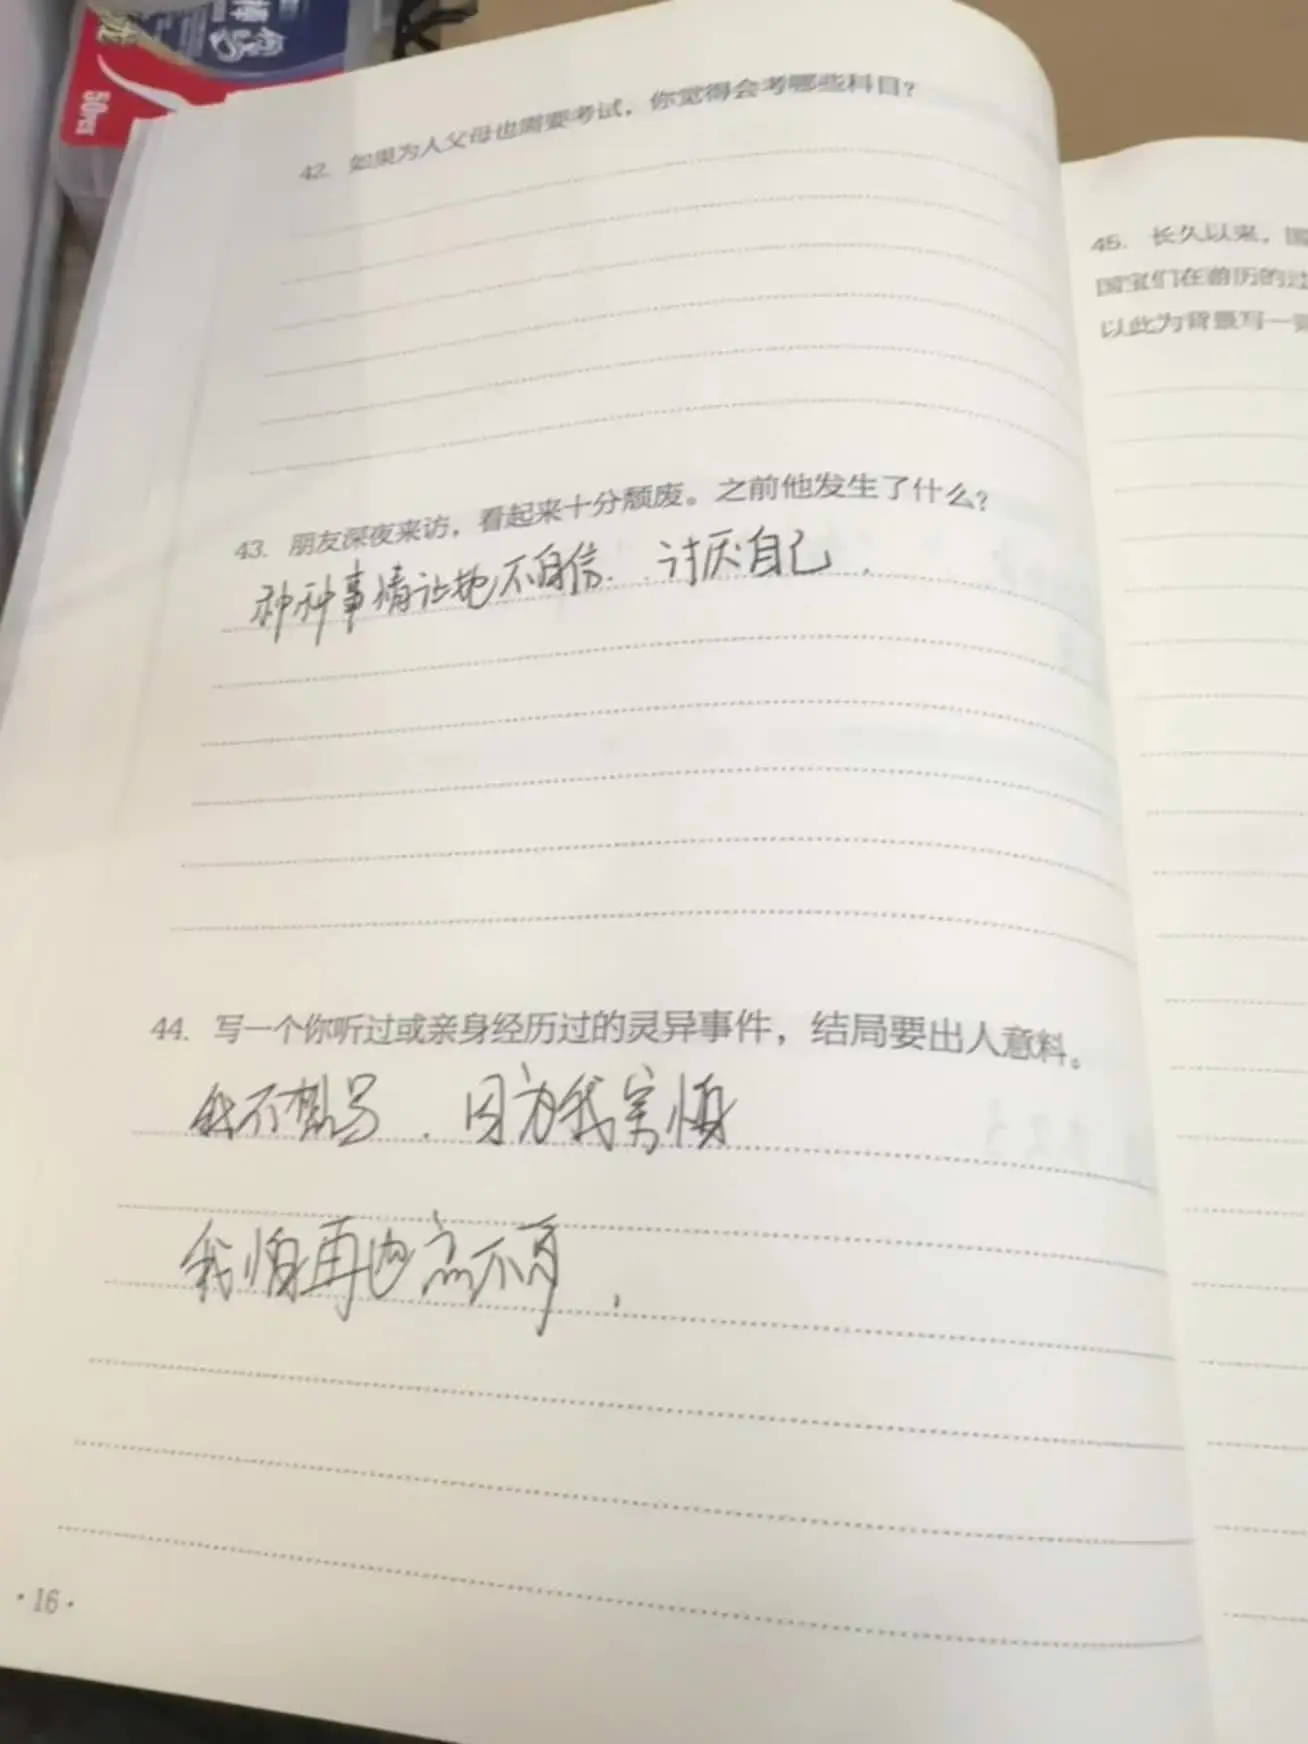 50pcs
42. 如果为人父母也需要考试，你觉得会考哪些科目？
43. 朋友深夜来访，看起来十分颓废。之前他发生了什么？
种种事情让她不自信. 讨厌自己.
44. 写一个你听过或亲身经历过的灵异事件，结局要出人意料。
我不想写. 因为我害怕
我怕再
.
·16·
45. 长久以来，国
国宝们在游历的过
以此为背景写一篇